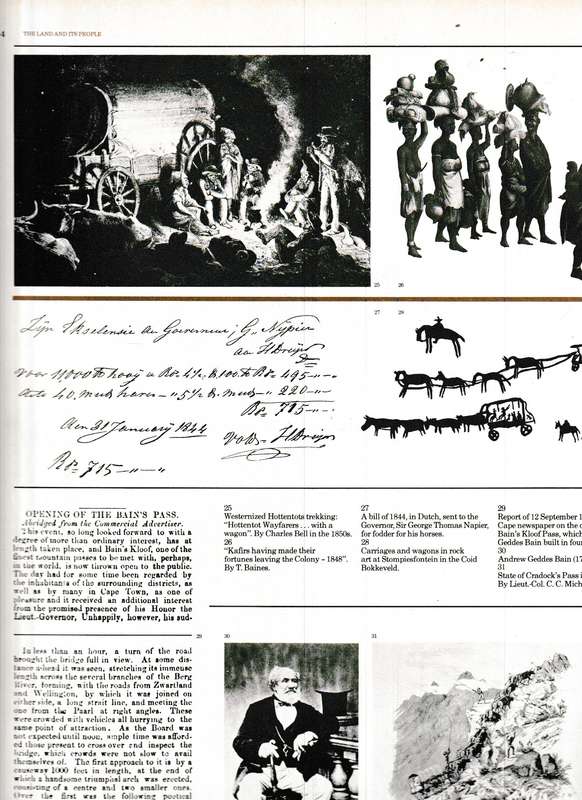 4
THE LAND AND ITS PEOPLE
25
26
Zijn Ekselensie den Governeur, G. Napier
27
29
Rds 715
den 31 January 1844
Rds 715
OPENING OF THE BAIN'S PASS.
Abridged from the Commercial Advertiser.
This event, so long looked forward to with a
degree of more than ordinary interest, has at
length taken place, and Bain's Kloof, one of the
finest mountain passes to be met with, perhaps,
in the world, is now thrown open to the public.
The day had for some time been regarded by
the inhabitants of the surrounding districts, as
well as by many in Cape Town, as one of
pleasure and it received an additional interest
from the promised presence of his Honor the
Lieut.-Governor, Unhappily, however, his sud-
25
Westernized Hottentots trekking:
"Hottentot Wayfarers . . . with a
wagon". By Charles Bell in the 1850s.
26
"Kafirs having made their
fortunes leaving the Colony – 1848".
By T. Baines.
27
A bill of 1844, in Dutch, sent to the
Governor, Sir George Thomas Napier,
for fodder for his horses.
28
Carriages and wagons in rock
art at Stompiesfontein in the Coid
Bokkeveld.
29
Report of 12 September 1
Cape newspaper on the o
Bain's Kloof Pass, which
Geddes Bain built in four
30
Andrew Geddes Bain (17
31
State of Cradock's Pass i
By Lieut.-Col. C. C. Mich
29
In less than an hour, a turn of the road
brought the bridge full in view. At some dis-
tance a-head it was seen, stretching its immense
length across the several branches of the Berg
River, forming, with the roads from Zwartland
and Wellington, by which it was joined on
either side, a long strait line, and meeting the
one from the Paarl at right angles. These
were crowded with vehicles all hurrying to the
same point of attraction. As the Board was
not expected until noon, ample time was afford-
ed those present to cross over and inspect the
bridge, which crowds were not slow to avail
themselves of. The first approach to it is by a
causeway 1000 feet in length, at the end of
which a handsome triumphal arch was erected,
consisting of a centre and two smaller ones.
Over the first was the following poetical
30
31